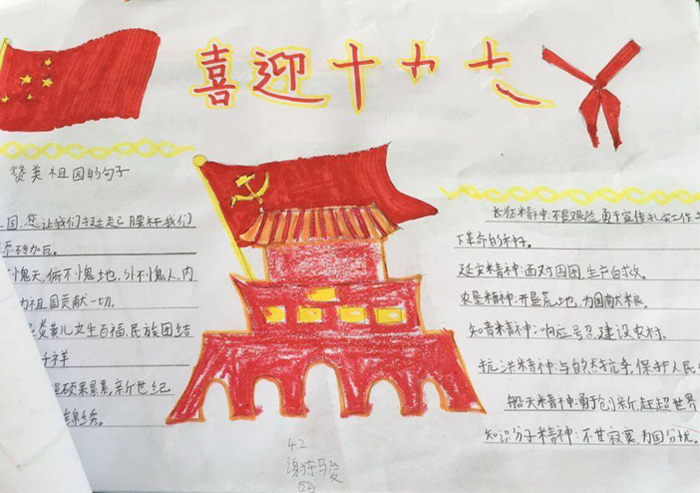 喜迎十九大
赞美祖国的句子
国,您让我们挺起腰杆我们
添砖加瓦。
不愧天,俯不愧地,外不愧人,内
为祖国贡献一切。
炎黄儿女生百福,民族团结
千祥
硕果累累,新世纪
锦绣。
长征精神:不畏艰险,勇于宣传扎实工作
下革命的种子。
延安精神:面对困困,生产自救。
农垦精神:开垦荒地,为国献粮。
知青精神:响应号召,建设农村。
抗洪精神:与自然抗争,保护人民
航天精神:勇于创新,赶超世界
知识分子精神:不甘寂寞,为国分忧。
4.2
谢